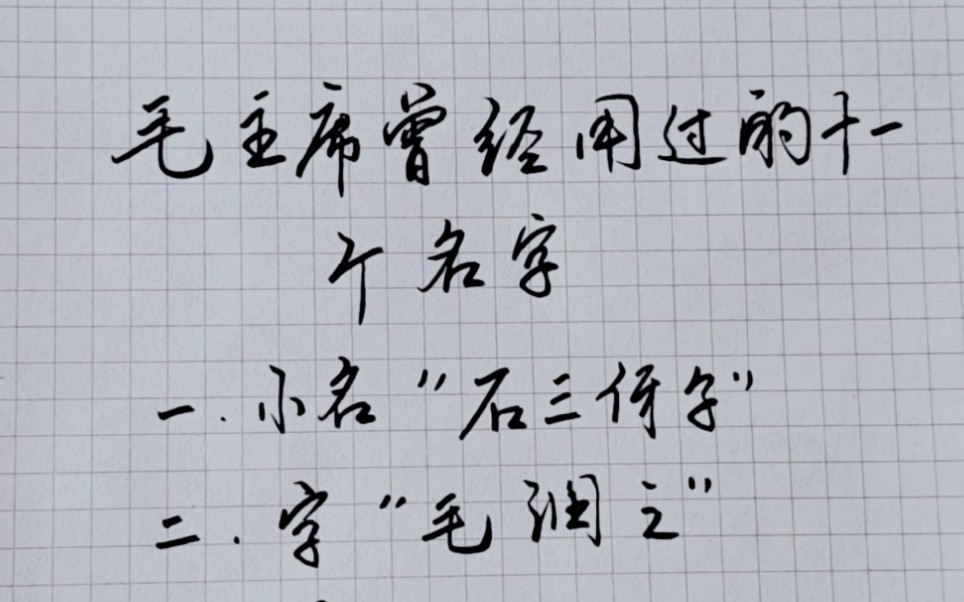 毛主席曾经用过的十一
个名字
一.小名“石三伢子”
二.字“毛润之”